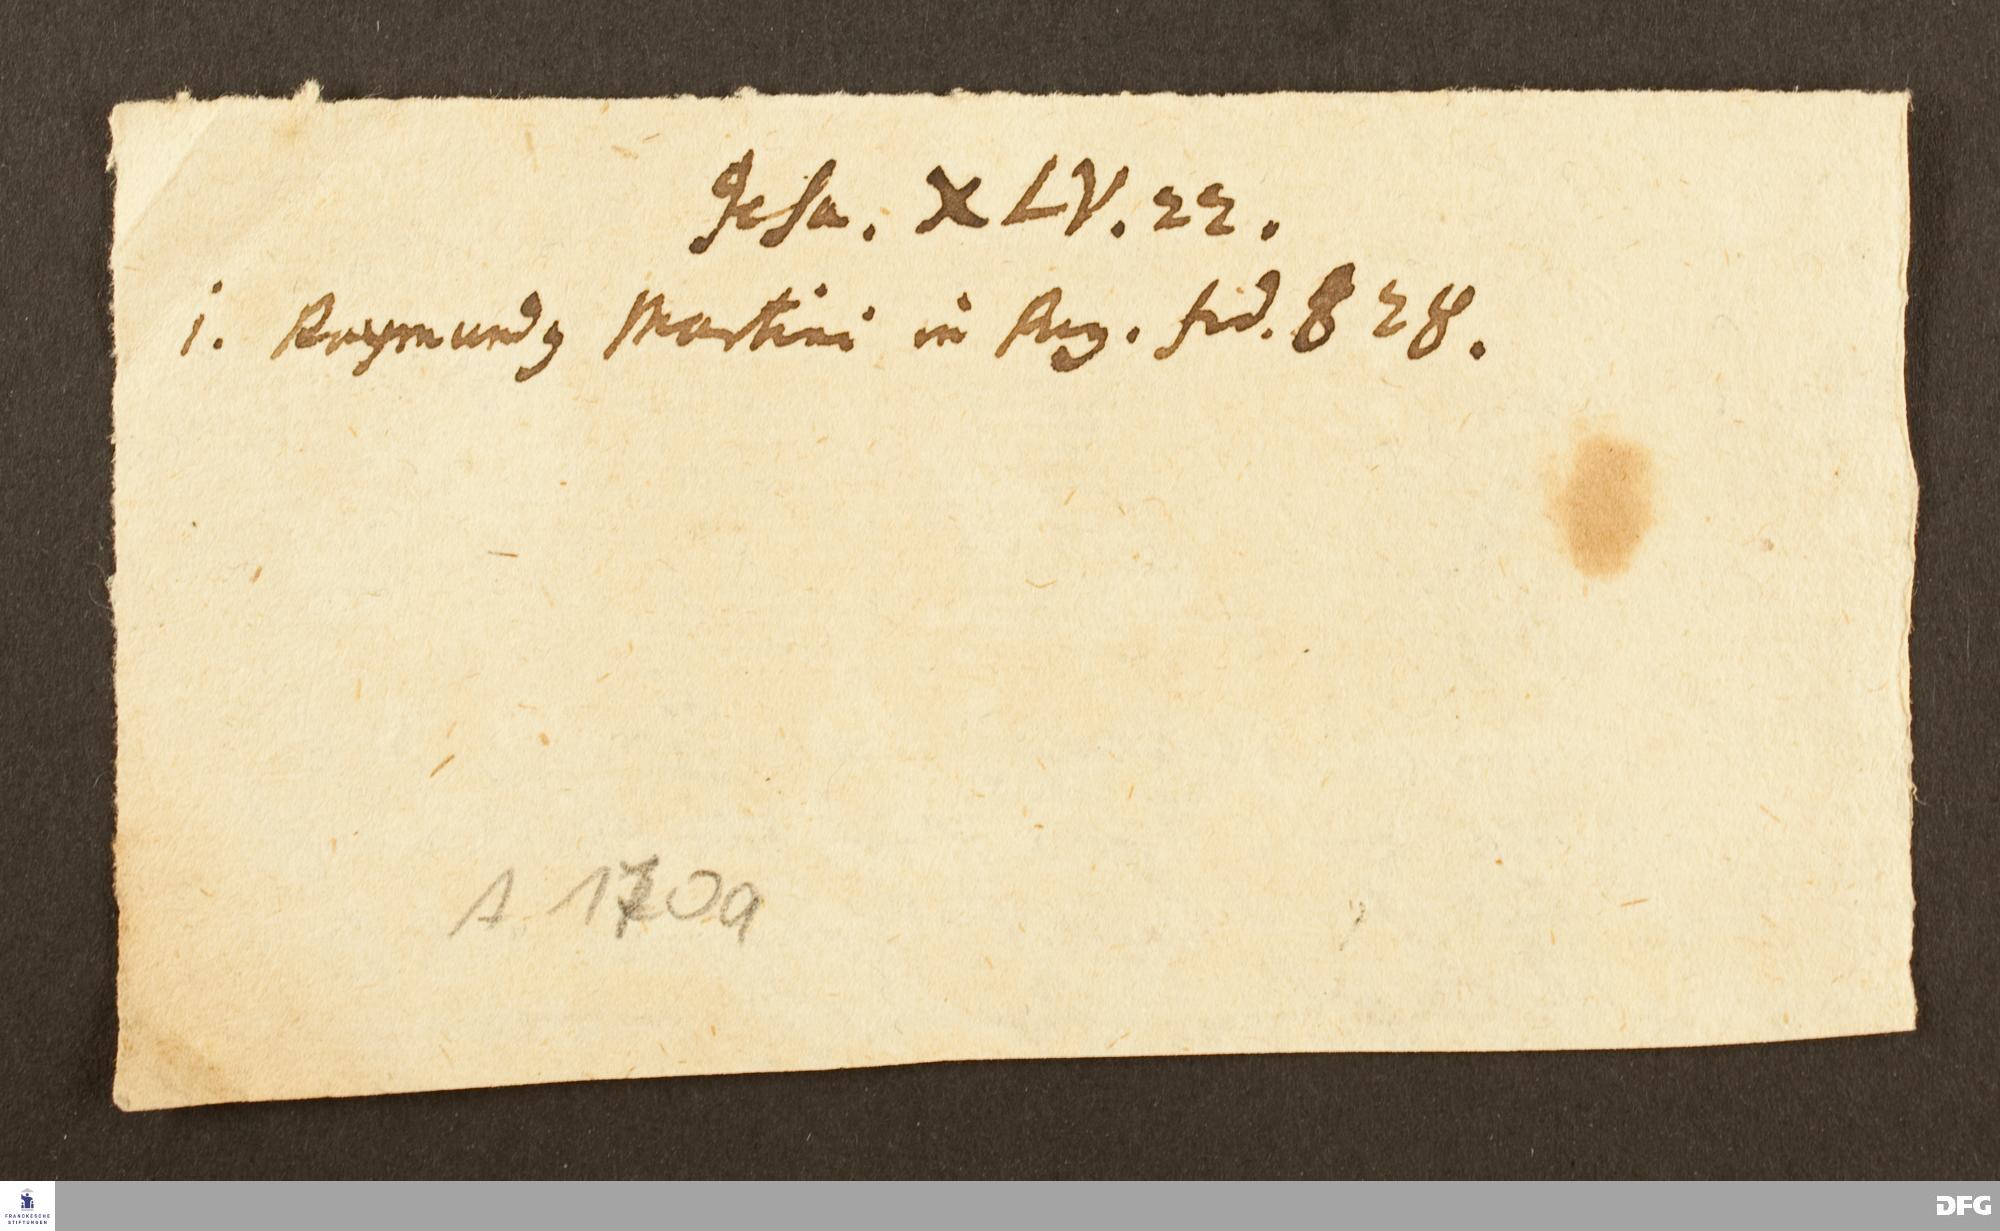 Jesa. XLV. 22.
1. Raymundꝰ Martini in Pug. fid. 828.
A 170a
FRANCKESCHE
STIFTUNGEN
DFG